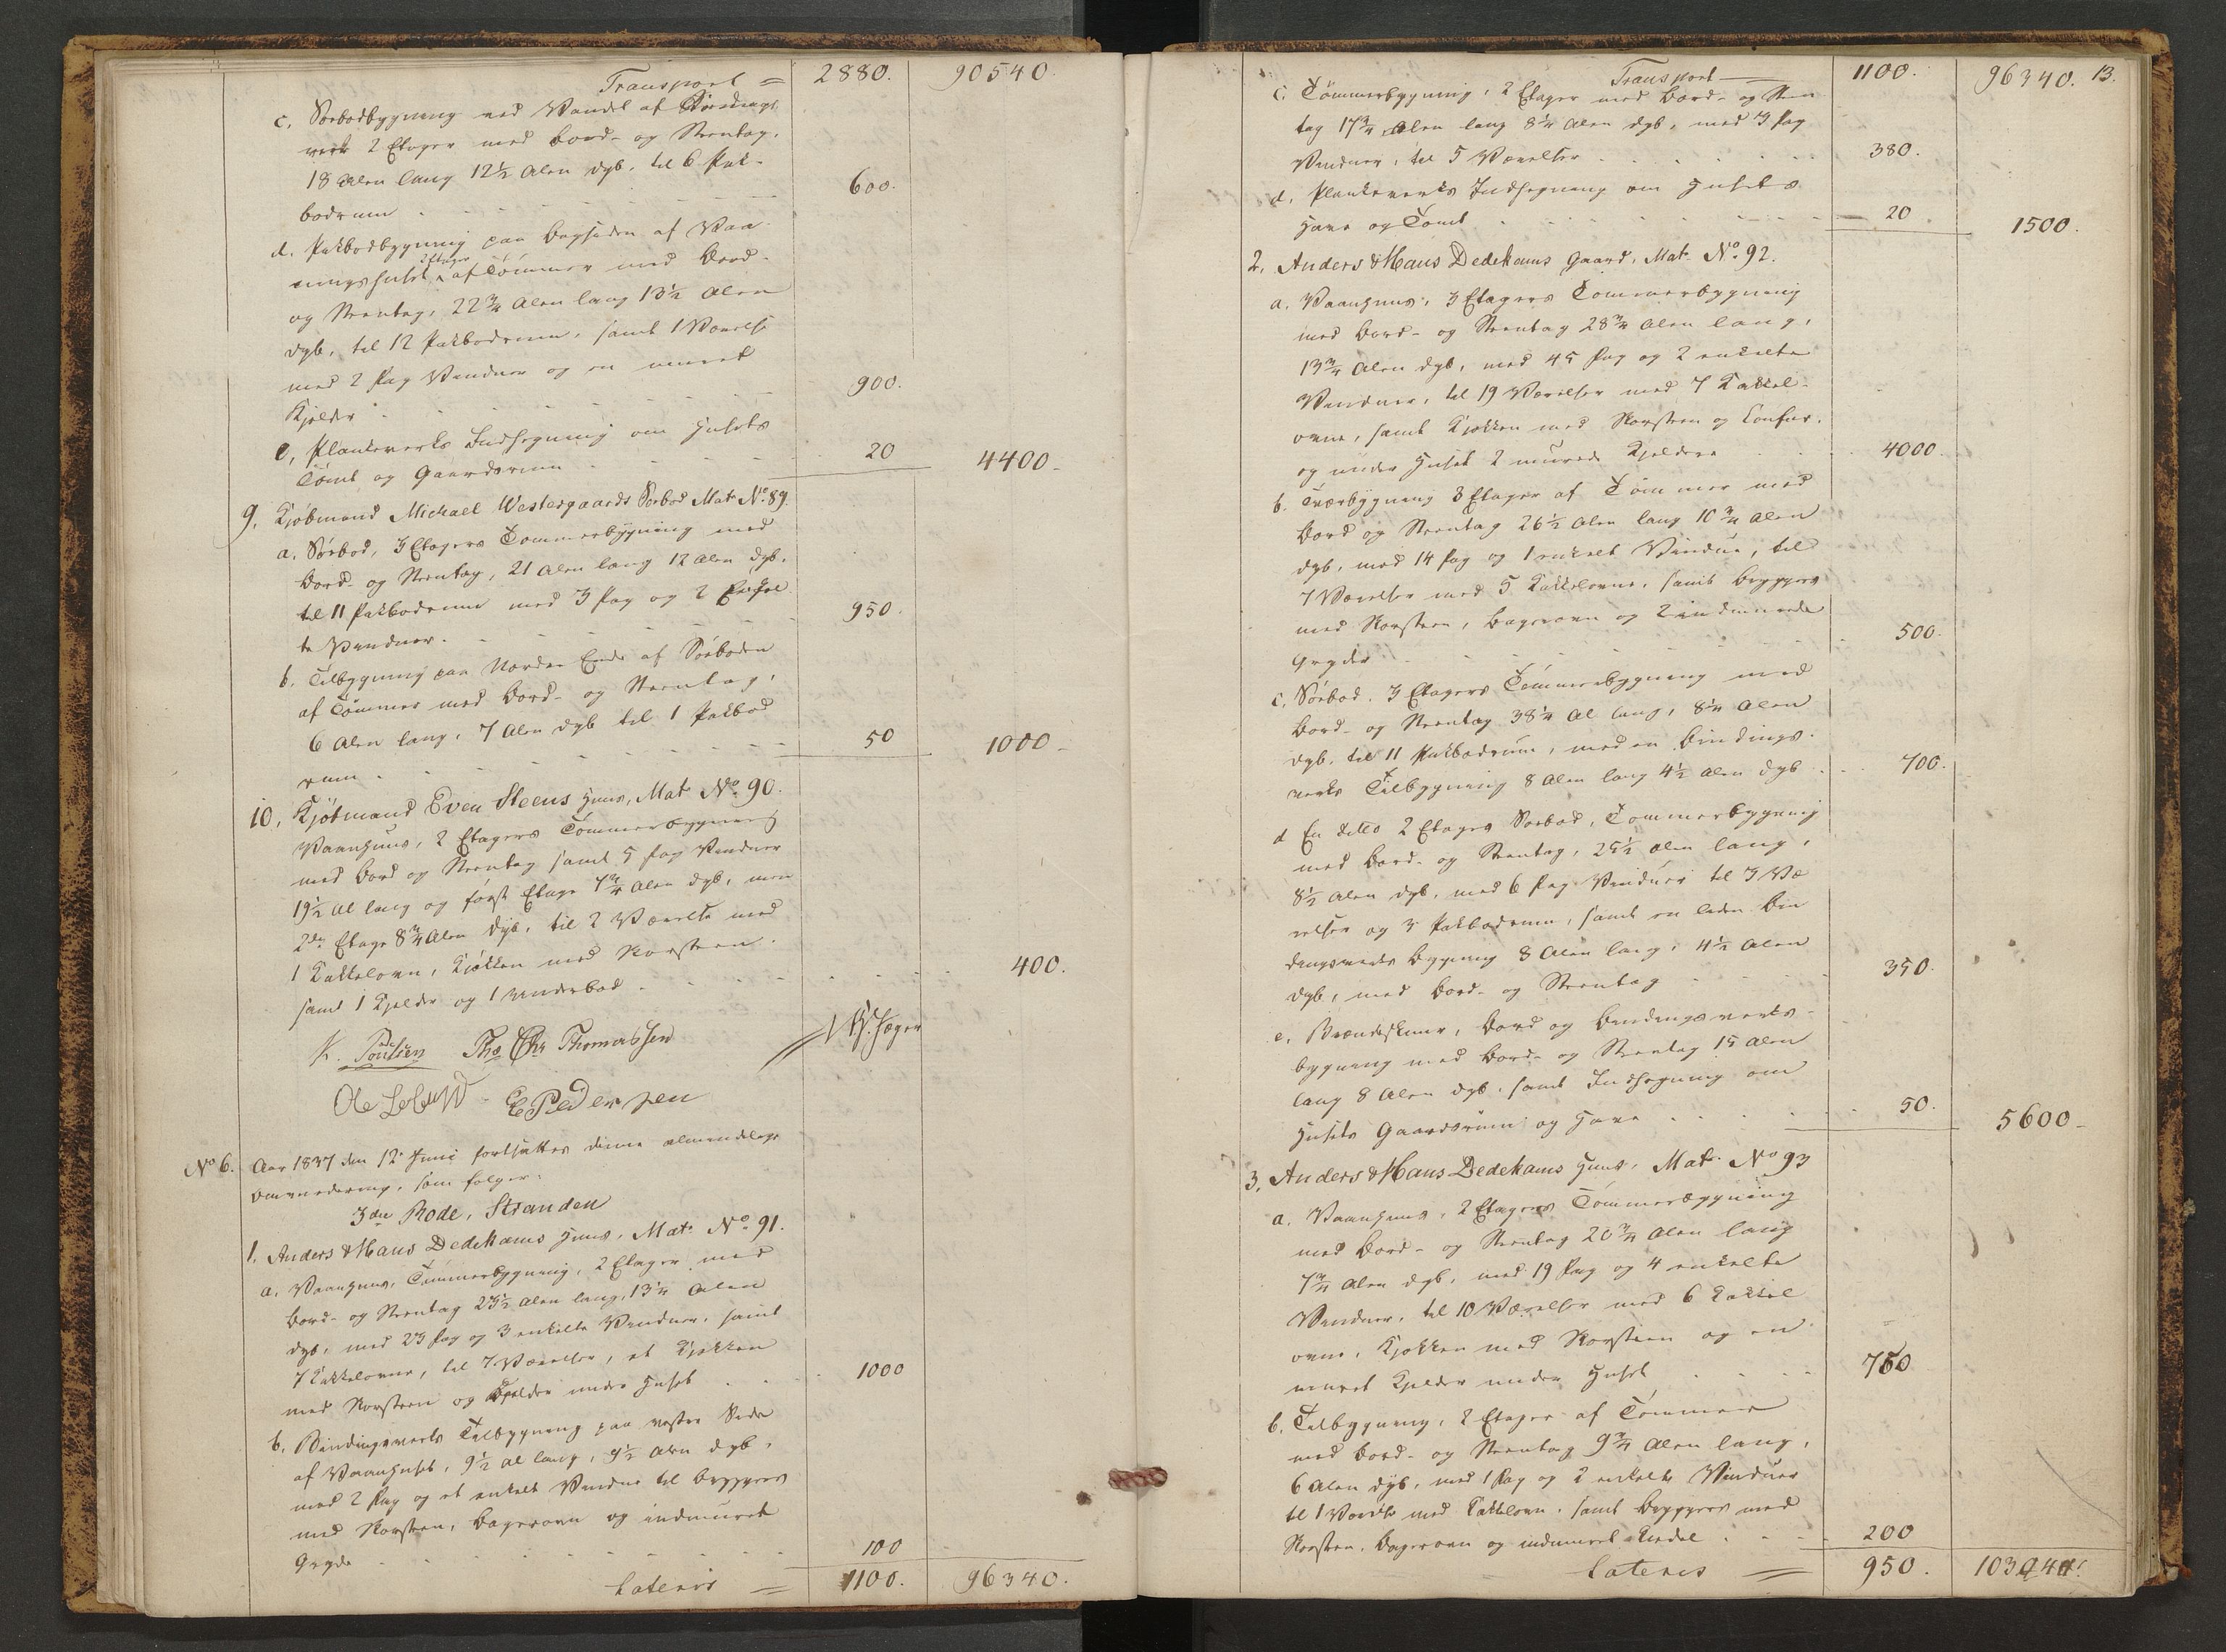 Transport = 2880. 90540.
c. Søebodbygning ved Vandet af Bindings
verk 2 Etager med bord- og Steentag,
18 Alen lang 12½ Alen dyb, til 6 Pak-
bodrum . . . 600.
d. Pakbodbygning paa bagsiden af Vaa-
ningshuset 2 Etager af Tømmer med Bord-
og Steentag, 22¾ Alen lang 13½ Alen
dyb, til 12 Pakbodrum, samt 1 Værelse
med 2 Fag Vinduer og en muret
Kjelder . . . 900.
e, Plankeverks Indhegning om Husets
Tomt og Gaardsrum . . . 20 4400-
9. Kjøbmand Michael Westergaards Søebod Mat. No. 89.
a. Søebod, 3 Etagers Tømmerbygning med
Bord- og Steentag, 21 Alen lang 12 Alen dyb,
til 11 Pakbodrum med 3 Fag og 2 Enkel
te Vinduer . . . 950.
b. Tilbygning paa Nordre Ende af Søeboden
af Tømmer med Bord- og Steentag,
6 Alen lang, 7 Alen dyb til 1 Pakbod
rum . . . 50 1000-
10, Kjøbmand Even Steens Huus, Mat. No. 90.
Vaanhuus, 2 Etagers Tømmerbygning
med Bord og Steentag samt 5 Fag Vinduer
19½ Al lang og først Etage 7¾ Alen dyb, men
2den Etage 8¾ Alen dyb, til 2 Værelse med
1 Kakkelovn, Kjøkken med Skorsteen.
samt 1 Kjelder og 1 underbod . . . 400.
K. Poulsen Ths Chr Thomassen
E Pedersen
No 6. Aar 1837 den 12te Juni fortsattes denne almindelige
Omvurdering, som følger.
3die Rode, Stranden
1. Anders & Hans Dedekams Huus, Mat. No. 91.
a. Vaanhuus, Tømmerbygning, 2 Etager med
Bord- og Steentag 23½ Alen lang, 13¼ Alen
dyb, med 23 Fag og 3 enkelte Vinduer, samt
7 Kakkelovne, til 7 Værelser, et Kjøkken
med Skorsteen og Kjelder under Huset . . . 1000
b. Bindingsverks Tilbygning paa vestre Side
af Vaanhuset, 9½ al lang, 9½ Alen dyb,
med 2 Fag og et enkelt Vindue til bryggers
med Skorsteen, Bagerovn og indmuret
Gryde . . . 100
Lateris = 1100. 96340.
Transport 1100. 96340. 13.
c. Tømmerbygning, 2 Etager med Bord- og Steen
tag 17¾ Alen lang 8¼ Alen dyb, med 3 Fag
Vinduer, til 5 Værelser . . . 380.
d. Plankeverks Indhegning om Husets
Have og Tomt . . . 20. 1500.
2. Anders & Hans Dedekams Gaard, Mat. No. 92.
a. Vaanhuus, 3 Etagers Tømmerbygning
med Bord- og Steentag 28¾ Alen lang,
13¾ Alen dyb, med 45 Fag og 2 enkelte
Vinduer, til 19 Værelser med 7 Kakkel-
ovne, samt Kjøkken med Skorsteen og Comfur.
og under Huset 2 murede Kjeldere . . . 4000.
b. Tværbygning 3 Etager af Tømmer med
Bord og Steentag 26½ Alen lang 10¾ Alen
dyb, med 14 Fag og 1 enkelt Vindue, til
7 Værelser med 5 Kakkelovne, samt bryggers
med Skorsteen, Bagerovn og 2 indmurede
Gryder . . . 500.
c. Søebod, 3 Etagers Tømmerbygning med
Bord- og Steentag 38¼ Al lang, 8¼ Alen
dyb, til 11 Pakbodrum, med en Bindings-
verks Tilbygning 8 Alen lang 4½ Alen dyb . . 700.
d En ditto 2 Etages Søebod, Tømmerbygning
med Bord- og Steentag, 25½ Alen lang,
8½ Alen dyb, med 6 Fag Vinduer til 3 Væ
relser og 3 Pakbodrum, samt en liden Bin
dingsverks bygning 8 Alen lang, 4½ Alen
dyb, med Bord- og Steentag . . . 350.
e, Brændeskuur, Bord og Bindingsverks-
bygning med Bord- og Steentag 15 Alen
lang 8 Alen dyb, samt Indhegning om
Husets Gaardsrum og Have . . . 50. 5600-
3, Anders & Hans Dedekams Huus, Mat. No 93
a. Vaanhuus, 2 Etagers Tømmerbygning
med Bord- og Steentag 20¾ Alen lang
7¾ Alen dyb, med 19 Fag og 4 enkelte
Vinduer, til 10 Værelser med 6 Kakkel
ovne, Kjøkken med Skorsteen og en
muret Kjelder under Huset . . . 750
b. Tilbygning, 2 Etager af Tømmer
med Bord- og Steentag 9¾ Alen lang,
6 Alen dyb, med 1 Fag og 2 enkelte Vinduer
til 1 Værelse med Kakkelovn, samt Bryggers med
Skorsteen, Bagerovn og indmuret Kiedel . . . 200
Lateris = 950. 103440.